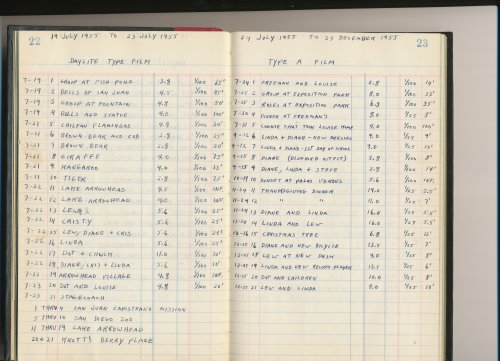 22
19 JULY 1955 TO 23 JULY 1955
DAYLITE TYPE FILM
7-19 1 GROUP AT FISH POND 2.8 1/100 65'
7-19 2 BELLS OF SAN JUAN 4.5 1/100
7-19 3 GROUP AT FOUNTAIN 4.8 1/100 50'
7-19 4 BELLS AND STATUE 4.0 1/100 100'
7-21 5 CHILEAN FLAMINGOS 4.8 1/100 30'
7-21 6 BROWN BEAR AND CUB 2.8 1/100 25'
7-21 7 BROWN BEAR 2.8 1/100 30'
7-21 8 GIRAFFE 4.0 1/100 75'
7-21 9 KANGAROO 4.0 1/100 15'
7-21 10 TIGER 2.8 1/100 25'
7-22 11 LAKE ARROWHEAD 4.5 1/100 INF.
7-22 12 LAKE ARROWHEAD 4.0 1/100 INF.
7-22 13 LEW 5.6 1/100 25'
7-22 14 CRISTY 5.6 1/100 25'
7-22 15 LEW, DIANE + CRIS 5.6 1/100 25'
7-22 16 LINDA 5.6 1/100 25'
7-22 17 DOT + CHUCK 11.0 1/100 10'
7-22 18 DIANE, CRIS + LINDA 5.6 1/100 10'
7-22 19 ARROWHEAD VILLAGE 4.8 1/100 INF.
7-23 20 DOT AND LOUISE 4.8 1/100 20'
7-23 21 STAGECOACH
1 THRU 4 SAN JUAN CAPISTRANO MISSION
5 THRU 10 SAN DIEGO ZOO
11 THRU 19 LAKE ARROWHEAD
20+21 KNOTT'S BERRY PLACE
24 JULY 1955 TO 25 DECEMBER 1955
23
TYPE A FILM
7-24 1 FREEMAN AND LOUISE 2.8 1/100 14'
7-25 2 GROUP AT EXPOSITION PARK 8.0 1/100 25'
7-25 3 ROSES AT EXPOSITION PARK 6.8 1/100 35'
7-24 4 DINNER AT FREEMAN'S 8.0 1/25 8'
7-31 5 CONVOY THAT TOOK LOUISE HOME 8.0 1/100 100'
9-12 6 LINDA + DIANE - NEW DRESSES 9.0 1/25 9'
9-12 7 LINDA + DIANE - 1ST DAY OF SCHOOL 9.0 1/25 10'
9-15 8 DIANE 2.8 1/100 8'
9-15 9 DIANE, LINDA + STEVE 2.8 1/100 14'
10-19 10 SUNSET AT PALOS VERDES 5.6 1/100 INF.
11-24 11 THANKSGIVING DINNER 19.0 1/25 5.5'
11-24 12 " " 11.0 1/25 7'
11-24 13 DIANE AND LINDA 16.0 1/25 5.5'
11-24 14 LINDA AND LEW 16.0 1/25 5.5'
12-16 15 CHRISTMAS TREE 6.8 1/25 12'
12-25 16 DIANE AND NEW BICYCLE 13.5 1/25 7'
12-25 18 LEW AT NEW DESK 9.0 1/25 9'
12-25 19 LINDA AND NEW RECORD PLAYER 13.5 1/25 6'
12-25 20 DOT AND CHILDREN 16.0 1/25 8'
12-25 21 LEW AND LINDA 9.0 1/25 10'